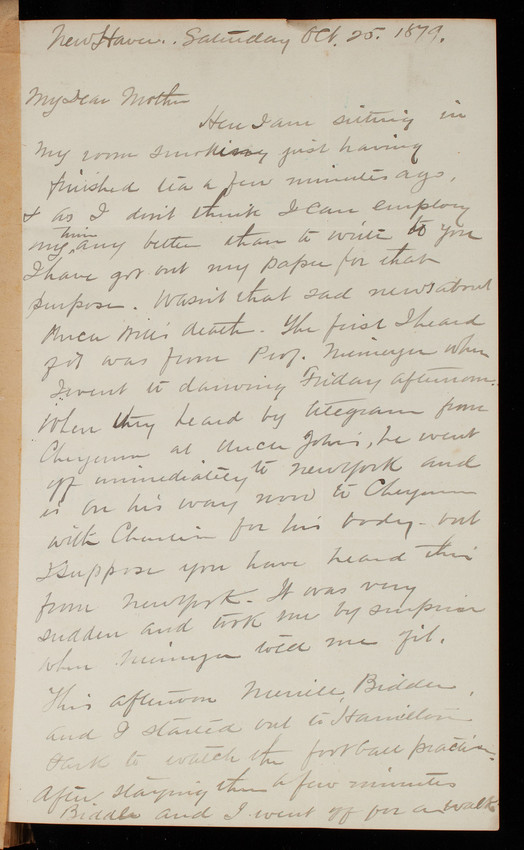 New Haven. Saturday Oct. 25. 1879.
My Dear Mother
Here I am sitting in
my room smoking just having
finished tea a few minutes ago,
& as I don't think I can employ
my time any better than to write to you
I have got out my paper for that
purpose. Wasn't that sad news about
Uncle Will's death. The first I heard
of it was from Prof. Niemeyer when
I went to drawing Friday afternoon.
When they heard by telegram from
Cheyenne at Uncle John's, he went
off immediately to New York and
is on his way now to Cheyenne
with Charlie for his body - but
I suppose you have heard this
from New York - It was very
sudden and took me by surprise
when Niemeyer told me of it.
This afternoon Biddle,
and I started out to Hamilton
Park to watch the foot ball practise.
After staying there a few minutes
Biddle and I went off for a walk